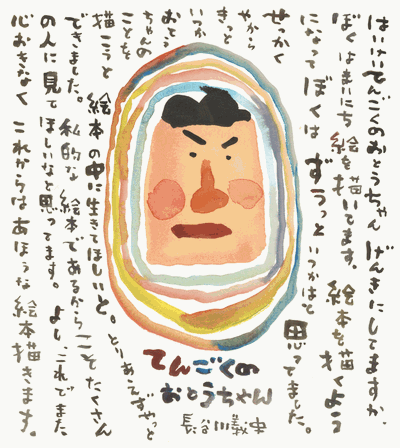 はいけいてんごくのおとうちゃん げんきにしてますか。
ぼくはまいにち 絵を描いてます。絵本を描くよう
になって ぼくは ずうっと いつかはと 思ってました。
せっかく
やから
きっと
いつか
おとう
ちゃんの
ことを
描こうと 絵本の中に生きてほしいと。
とりあえずやっと
できました。私的な 絵本であるからこそ たくさん
の人に見てほしいなと思ってます。よし、これでまた
心おきなく これからは あほうな 絵本描きます。
てんごくの
おとうちゃん
長谷川義史